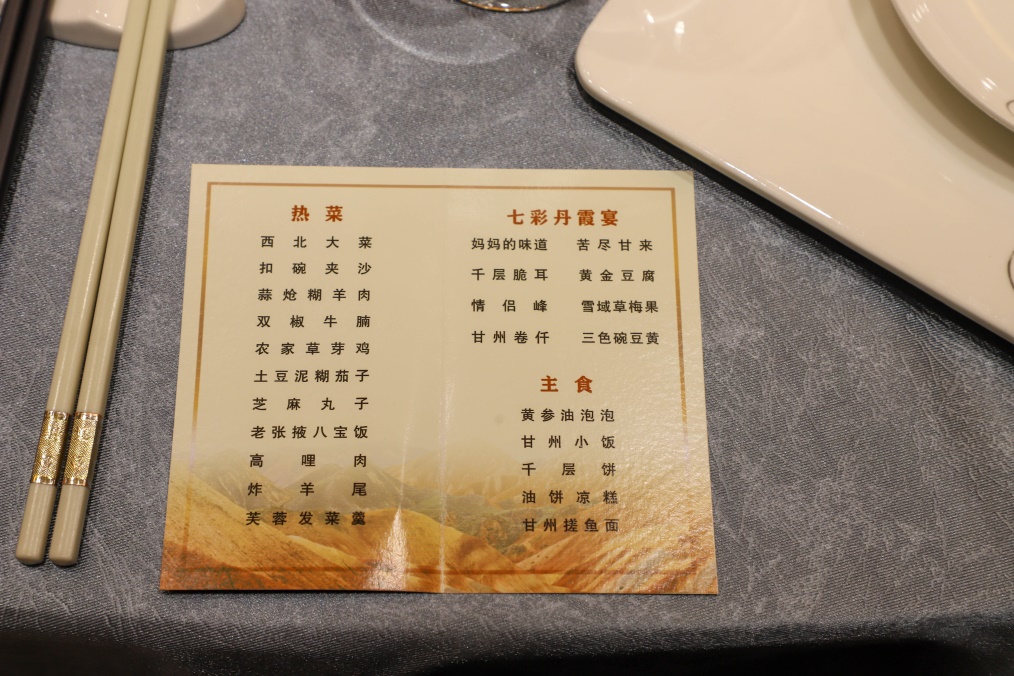 热菜
西北大菜
扣碗夹沙
蒜炝糊羊肉
双椒牛腩
农家草芽鸡
土豆泥糊茄子
芝麻丸子
老张掖八宝饭
高哩肉
炸羊尾
芙蓉发菜羹
七彩丹霞宴
妈妈的味道 苦尽甘来
千层脆耳 黄金豆腐
情侣峰 雪域草梅果
甘州卷仟 三色碗豆黄
主食
黄参油泡泡
甘州小饭
千层饼
油饼凉糕
甘州搓鱼面